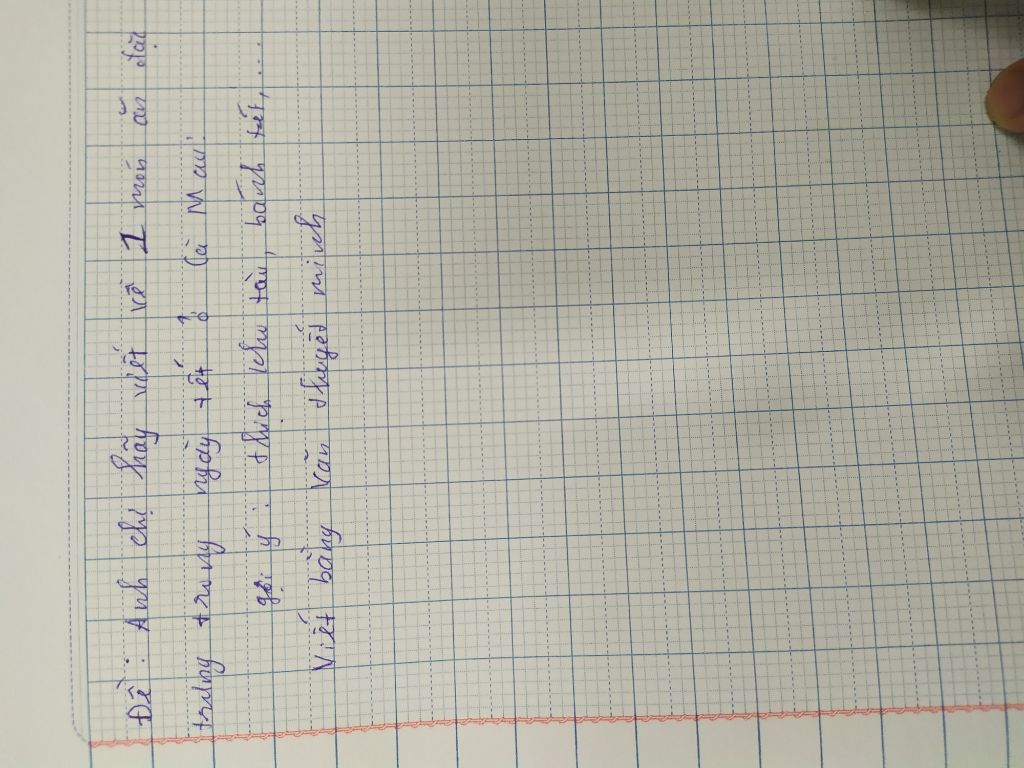 Đề: Anh chị hãy viết về 1 món ăn đặc
trưng trong ngày tết ở Cà Mau.
gợi ý: thịt kho tàu, bánh tét,...
Viết bằng văn thuyết minh